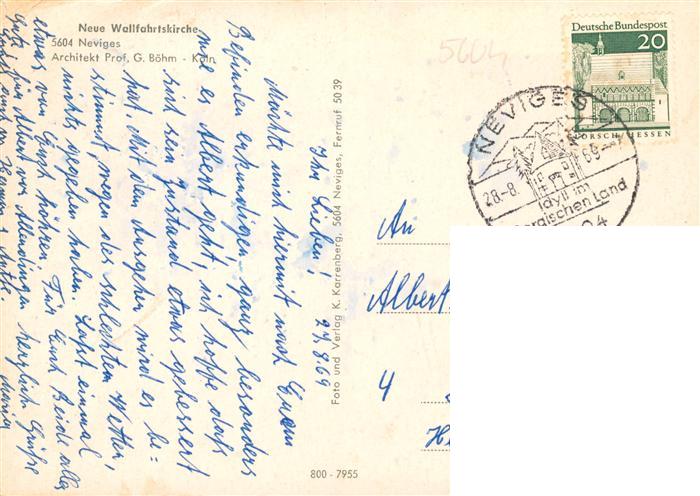 Neue Wallfahrtskirche
5604 Neviges
Architekt Prof. G. Böhm - Köln
5604
Deutsche Bundespost
20
LORSCH / HESSEN
NEVIGES
28.-8. 69
Idyll im
Bergischen Land
04
Ihr Lieben! 27.8.69
Möchte mich hiermit nach Euem
Befinden erkundigen, ganz besonders
wie es Albert geht, ich hoffe daß
sich sein Zustand etwas gebessert
hat. Mit dem Ausgehen wird es be=
stimmt, wegen des schlechten Wetter,
nichts gegeben haben. Laßt einmal
etwas von Euch hören. Für Euch Beide alles
Gute, für Albert vor Allendingen herzliche Grüße
Foto und Verlag K. Karrenberg, 5604 Neviges, Fernruf 50 39
An
Albert
4
H
800 - 7955